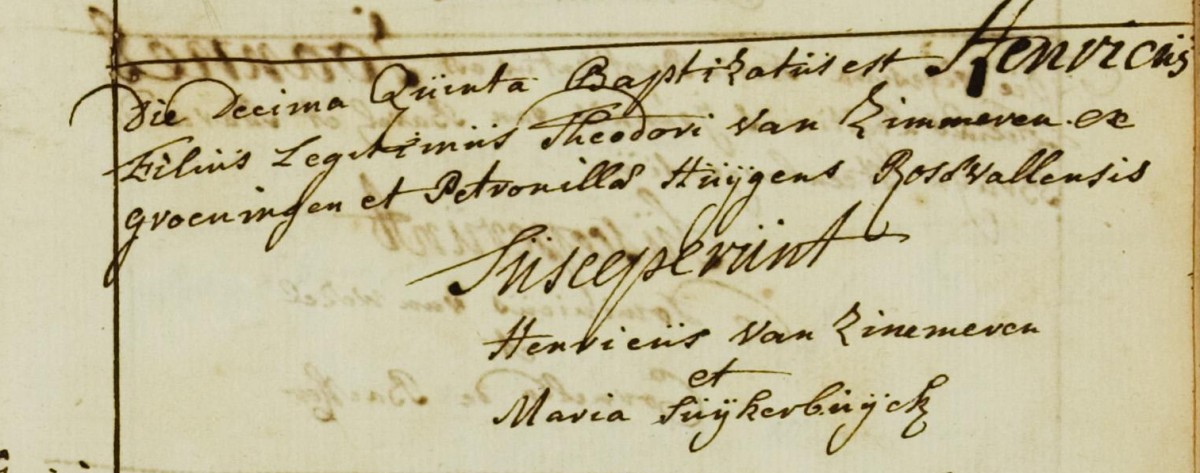 Die Decima Quinta Baptizatus est Henricus
Filius Legitimus Theodori Van Zimmeren ex
groeningen et Petronilla Huÿgens Rosdvallensis
Susceperunt
Henricus Van Zinemeren
et
Maria Suÿkerbuÿck